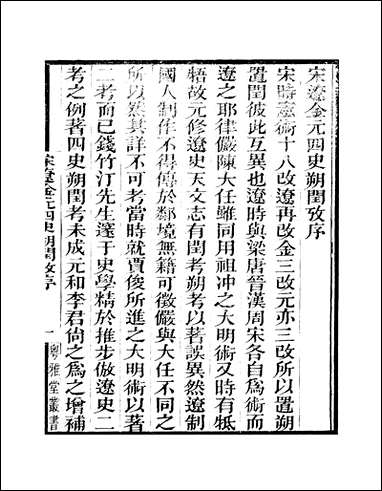 宋遼金元四史朔閏攷序
宋時憲術十八改遼再改金三改元亦三改所以置朔
置閏彼此互異也遼時與梁唐晉漢周宋各自爲術而
遼之耶律儼陳大任雖同用祖冲之大明術又時有牴
牾故元修遼史天文志有閏考朔考以著誤異然遼制
國人制作不得傳於鄰境無籍可徵儼與大任不同之
所以然其詳不可考當時就賈俊所進之大明術以著
二考而已錢竹汀先生邃于史學精於推步倣遼史二
考之例著四史朔閏考未成元和李君尙之爲之增補
宋遼金元四史朔閏攷序
一
粵雅堂叢書